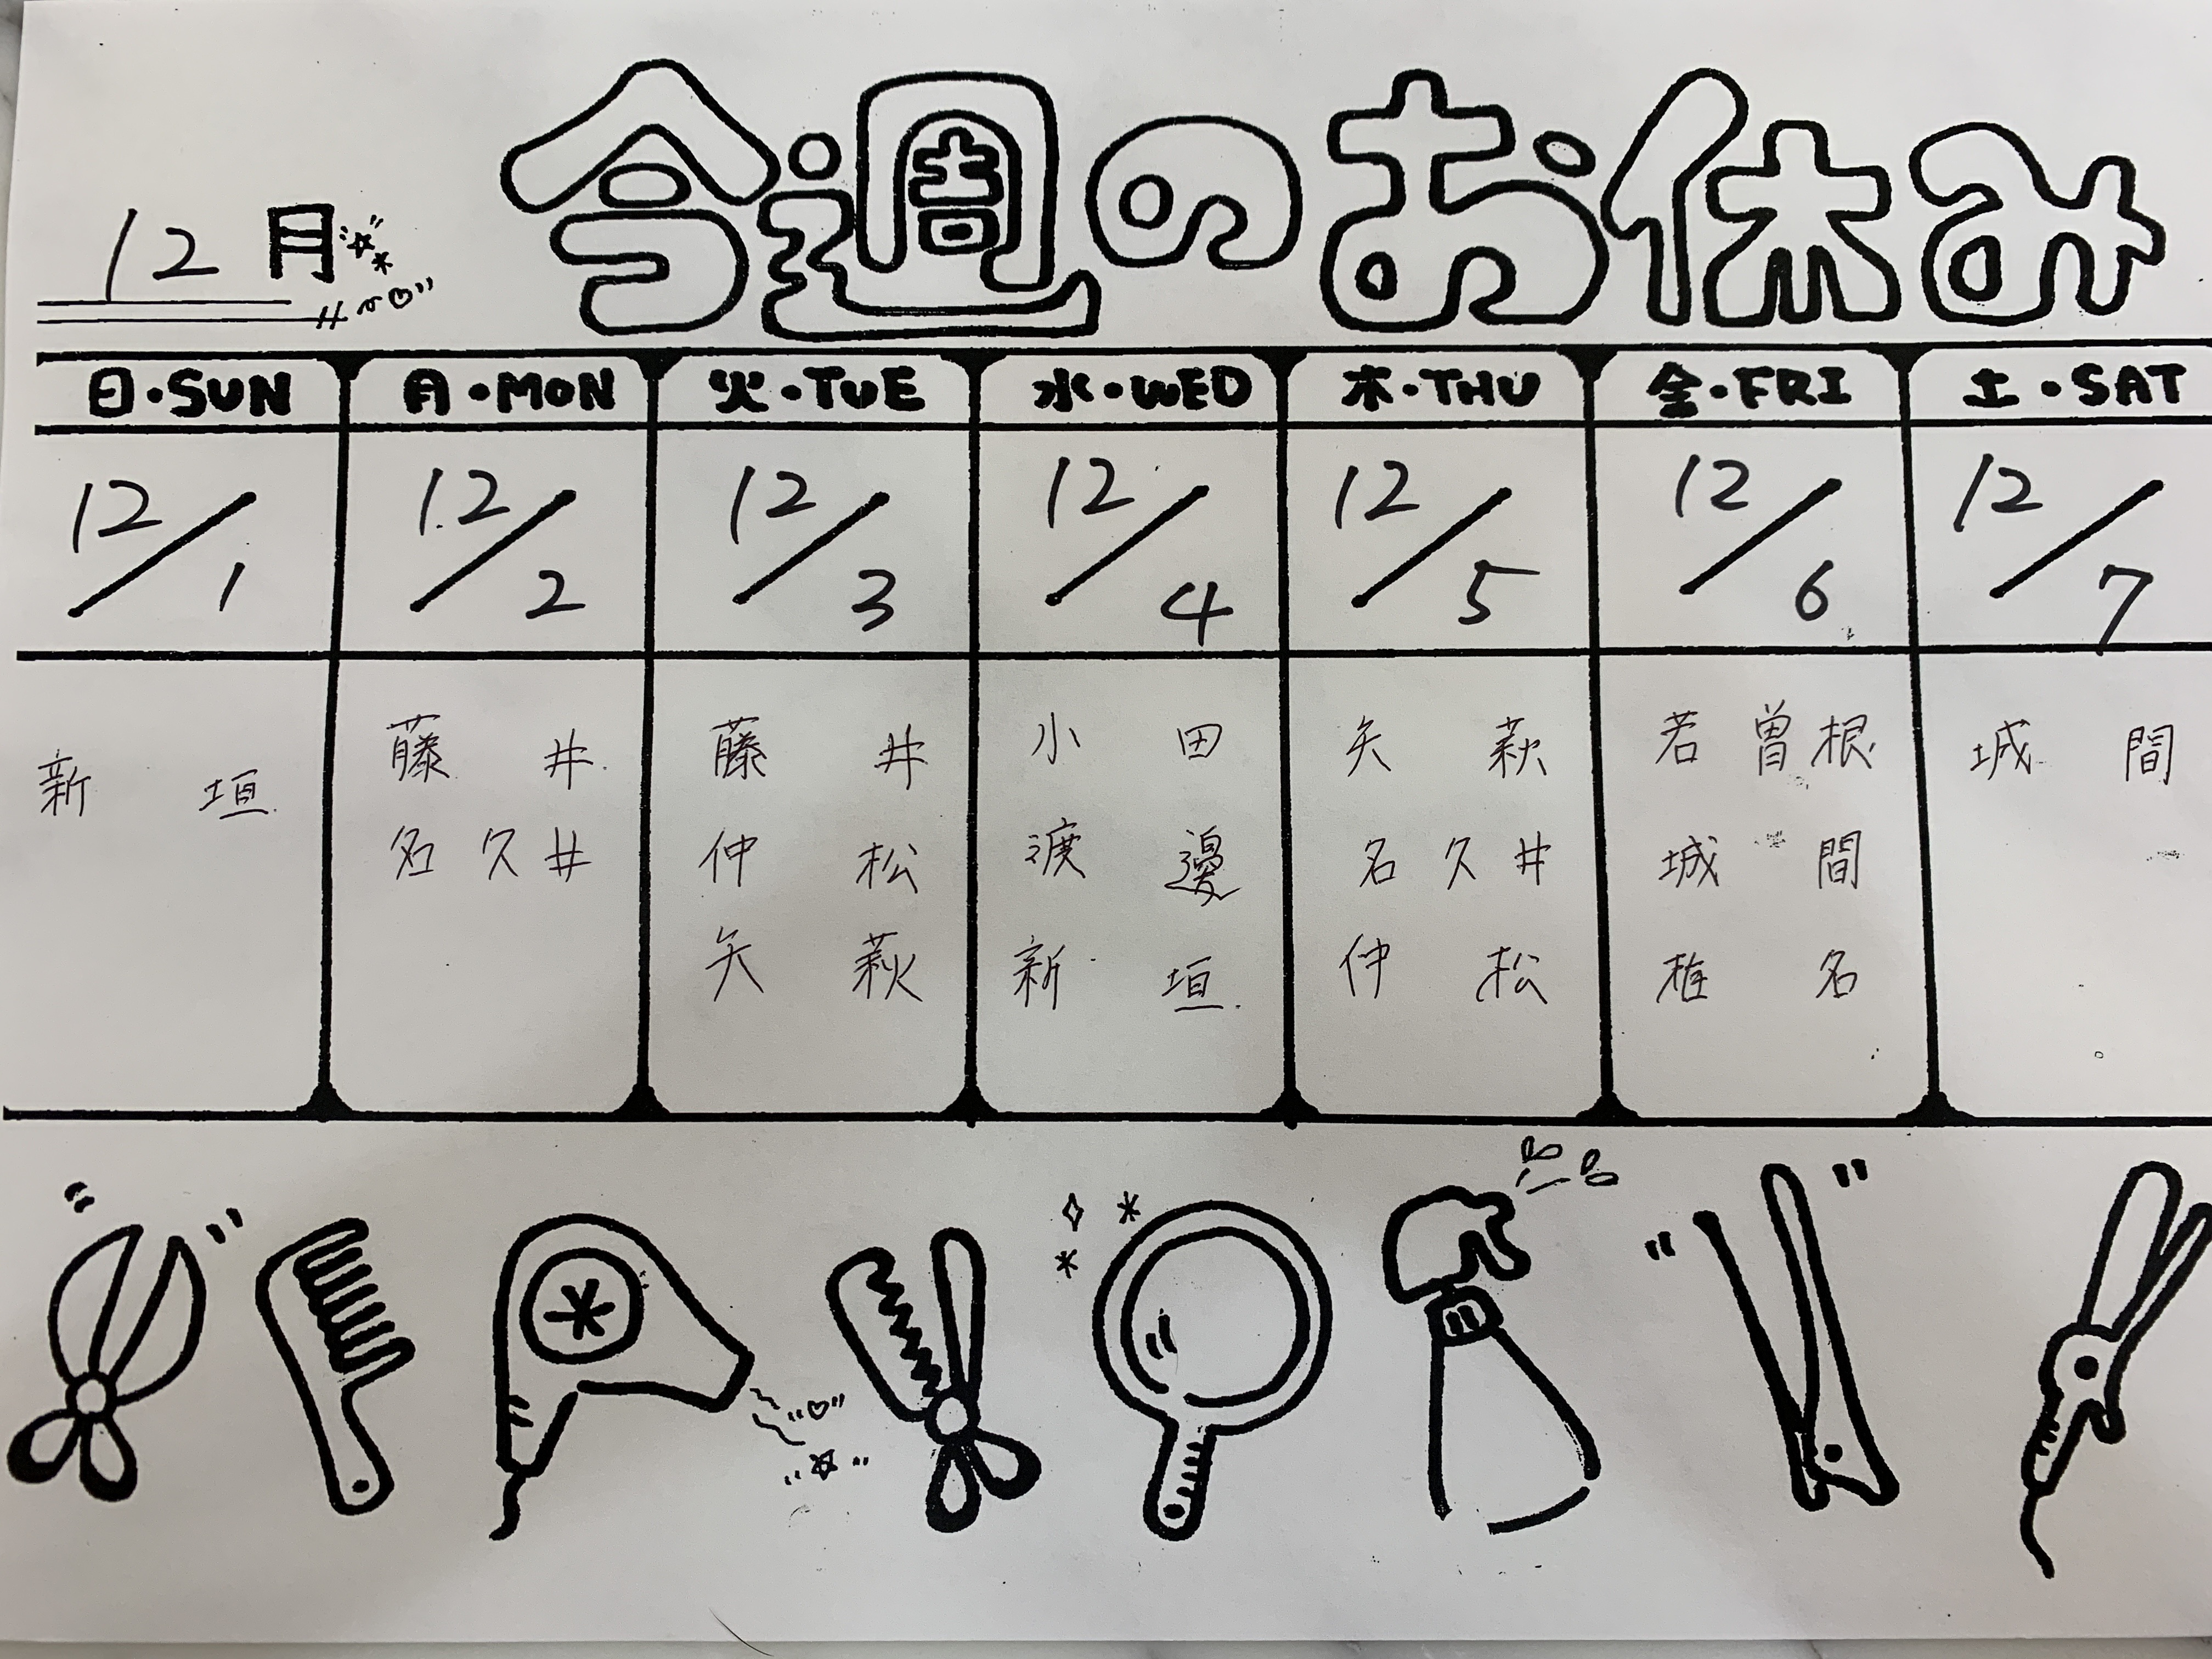 今週のお休み
12月
日・SUN 月・MON 火・TUE 水・WED 木・THU 金・FRI 土・SAT
12/1 12/2 12/3 12/4 12/5 12/6 12/7
新垣
藤井
名久井
藤井
仲松
矢萩
小田
渡邊
新垣
矢萩
名久井
仲松
若曽根
城間
椎名
城間